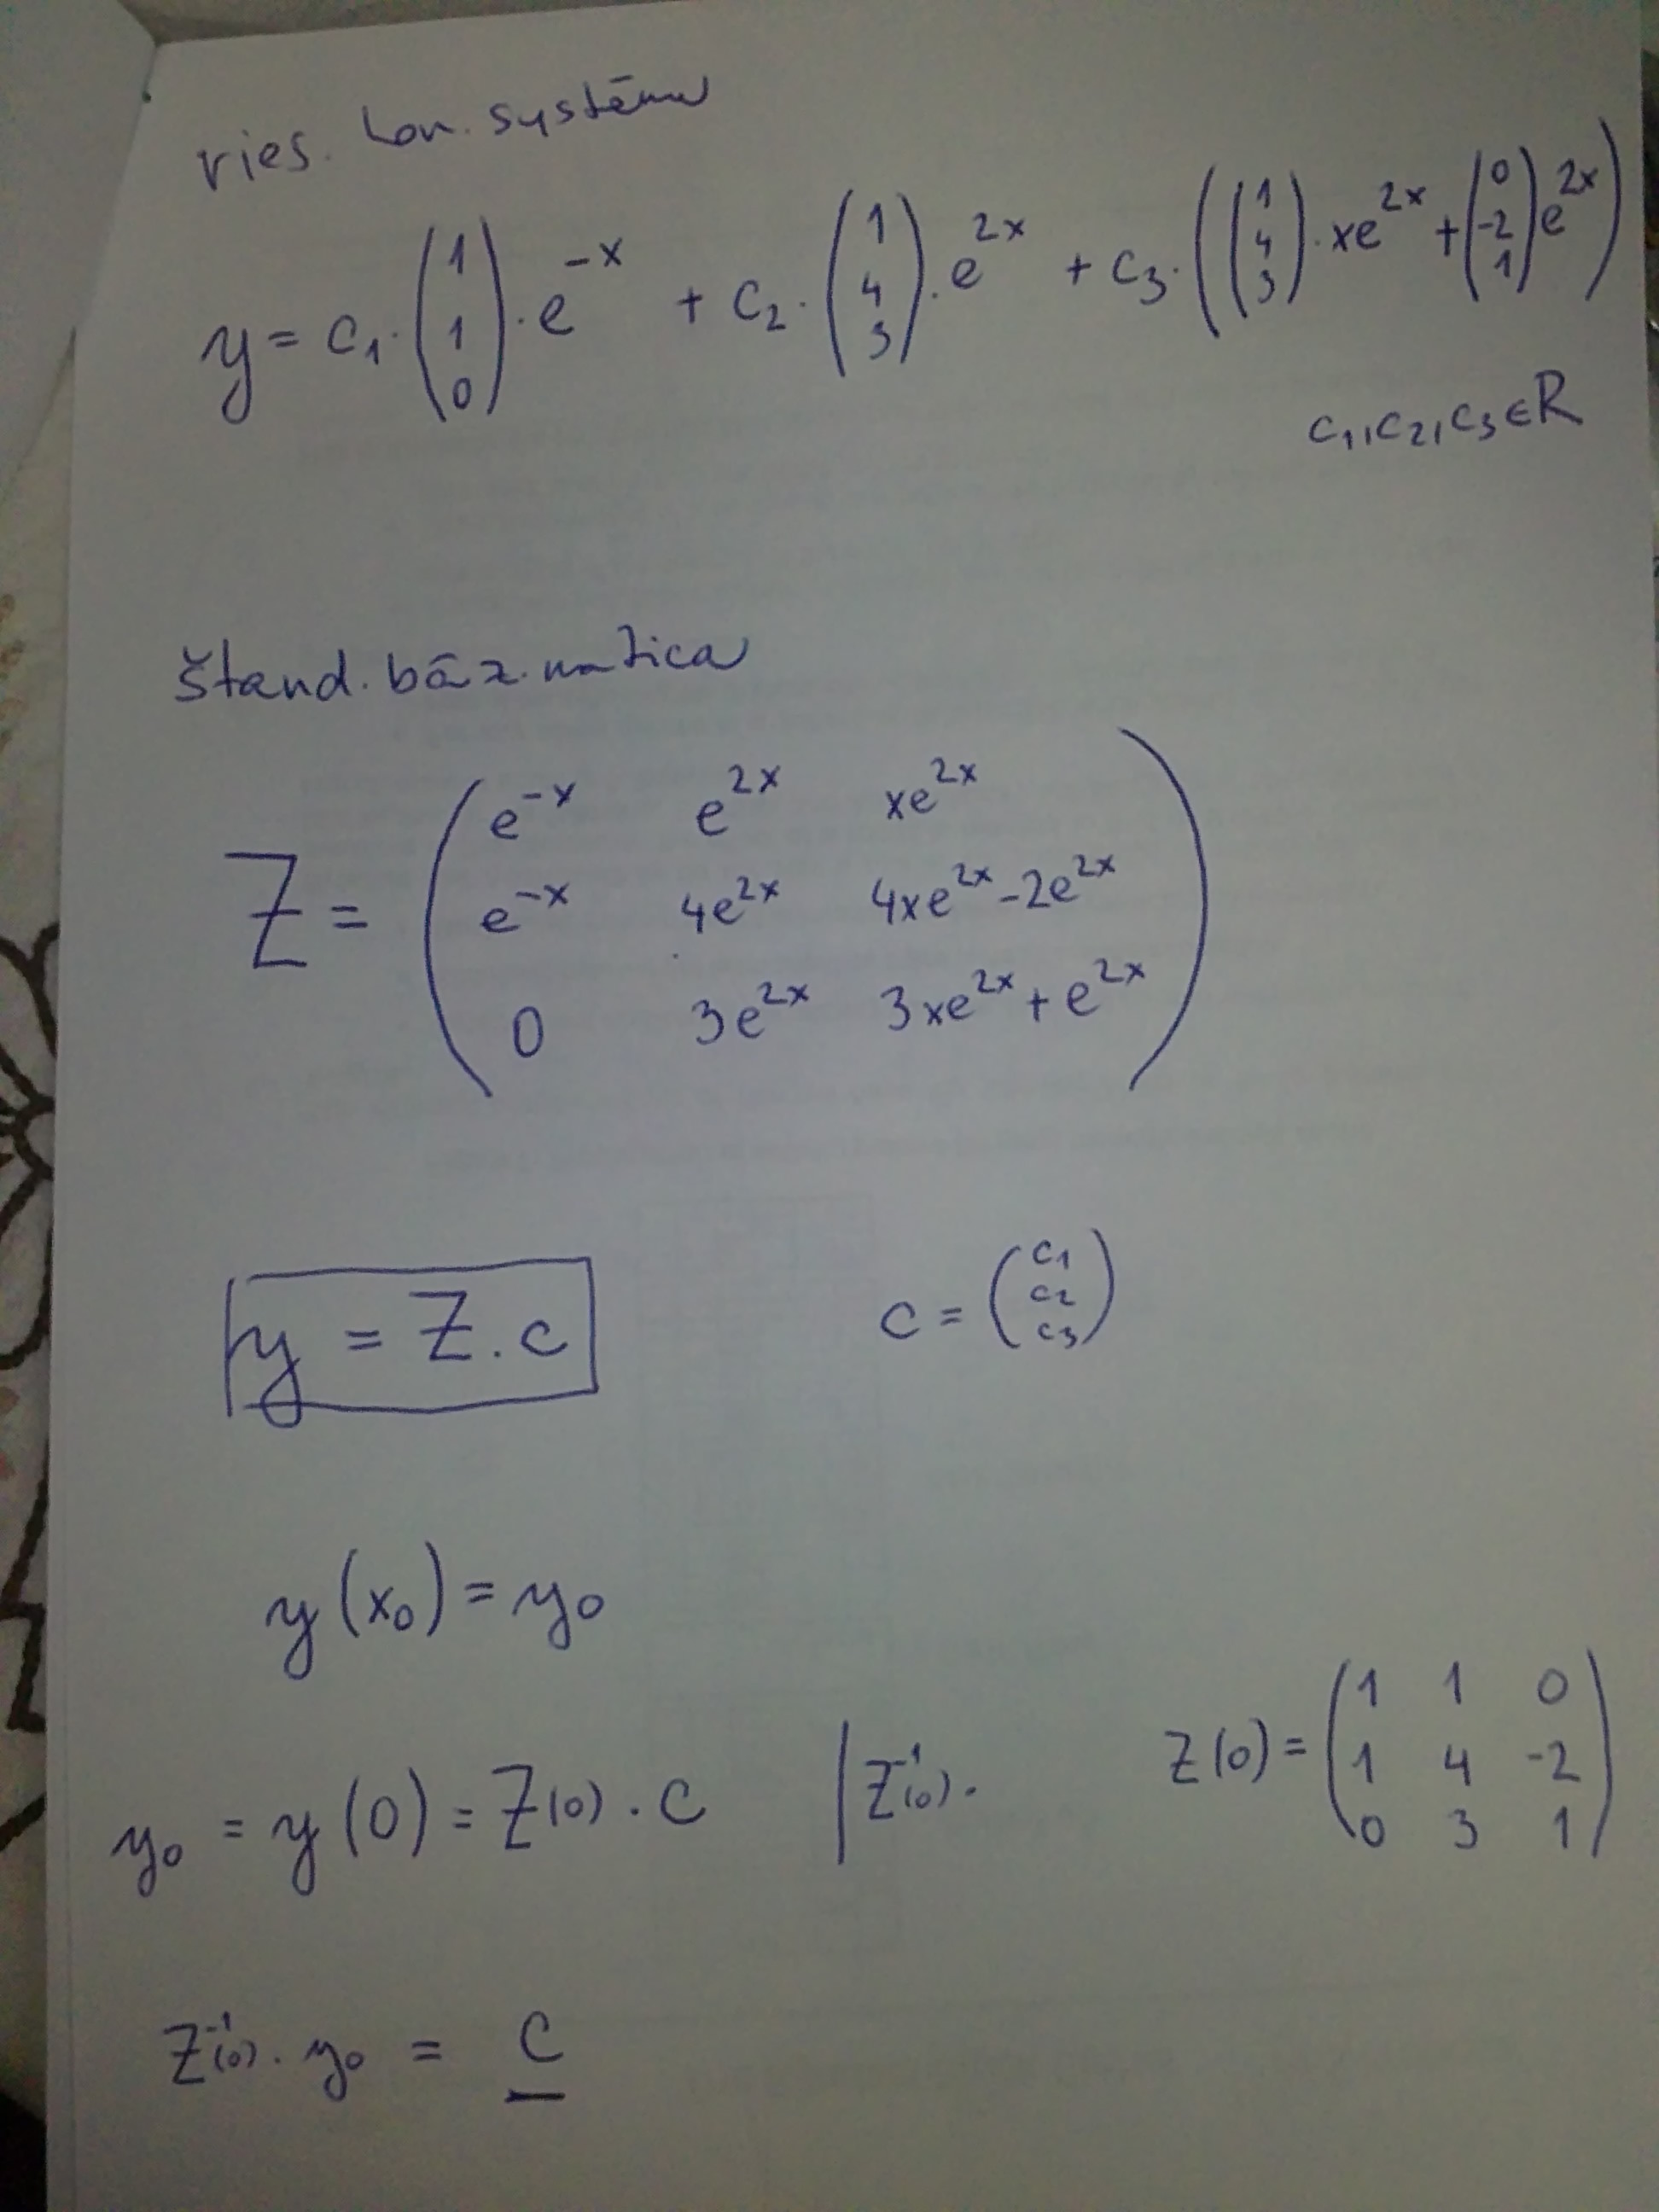 ries. hom. systému
y = c₁·(1 1 0)·e^(-x) + c₂·(1 4 3)·e^(2x) + c₃·((1 4 3)·xe^(2x) + (0 -2 1)e^(2x))
c₁,c₂,c₃∈R
štand. báz. matica
Z = (e^(-x) e^(2x) xe^(2x)
e^(-x) 4e^(2x) 4xe^(2x)-2e^(2x)
0 3e^(2x) 3xe^(2x)+e^(2x))
y = Z.c
c = (c₁ c₂ c₃)
y(x₀) = y₀
y₀ = y(0) = Z(0) . c | Z⁻¹(0).
Z(0) = (1 1 0
1 4 -2
0 3 1)
Z⁻¹(0). y₀ = c